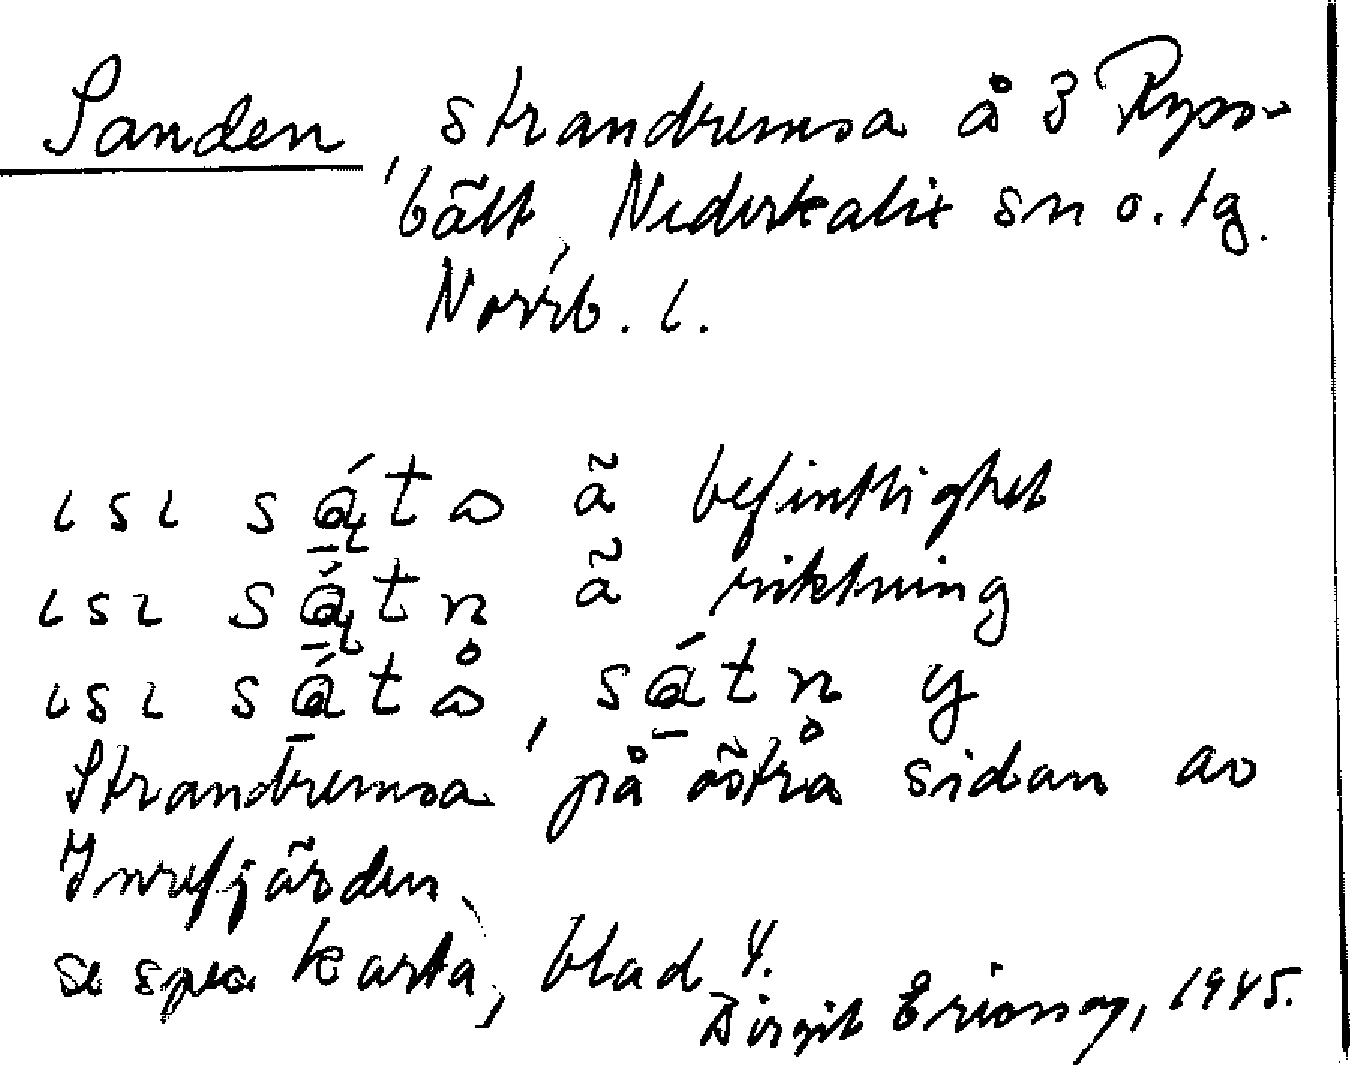 Sanden, strandremsa å 3 Ryss-
bält, Nederkalix sn o. tg.
Norrb. l.
ısı sáta ä befintlighet
ısı sátn ä riktning
ısı sátå, sátn y
Strandremsa på östra sidan av
Inrefjärden,
se spec karta, blad 4.
Birgit Ericson, 1945.